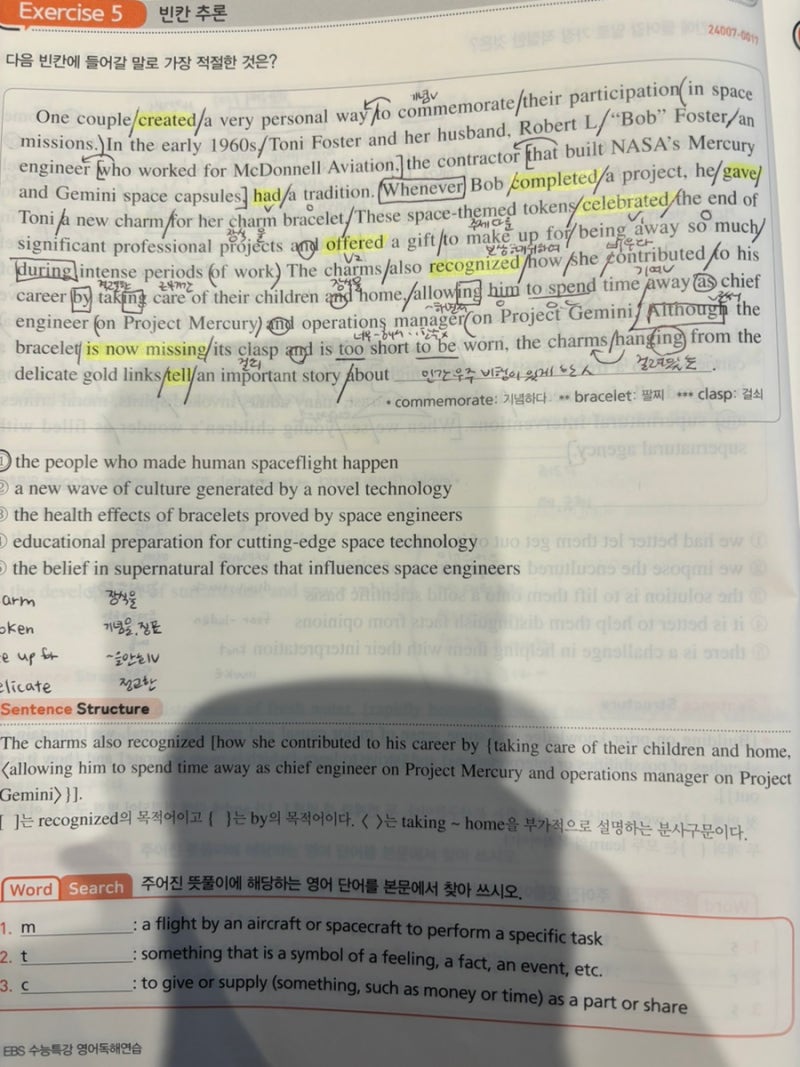 Exercise 5 빈칸 추론
24007-0017
다음 빈칸에 들어갈 말로 가장 적절한 것은?
기념V
One couple/created/a very personal way/to commemorate/their participation(in space
missions.)In the early 1960s,/Toni Foster and her husband, Robert L/“Bob” Foster/an
engineer [who worked for McDonnell Aviation,] the contractor [that built NASA’s Mercury
and Gemini space capsules] had/a tradition. [Whenever] Bob/completed/a project, he/gave/
Toni/a new charm/for her charm bracelet./These space-themed tokens/celebrated/the end of
장식물
significant professional projects and offered a gift/to make up for/being away so much/
V2
during intense periods (of work) The charms/also recognized/how/she contributed/to his
장식물
기여V
career by taking care of their children and home,/allowing him to spend time away as chief
engineer (on Project Mercury) and operations manager (on Project Gemini)/Although the
bracelet/is now missing/its clasp and is too short to be worn, the charms/hanging from the
걸쇠
delicate gold links/tell/an important story/about 인간 우주 비행이 있게 한 사 .
* commemorate: 기념하다 ** bracelet: 팔찌 *** clasp: 걸쇠
① the people who made human spaceflight happen
② a new wave of culture generated by a novel technology
③ the health effects of bracelets proved by space engineers
④ educational preparation for cutting-edge space technology
⑤ the belief in supernatural forces that influences space engineers
arm 장식물
oken 기념물, 징표
e up for
elicate 정교한
Sentence Structure
The charms also recognized [how she contributed to his career by {taking care of their children and home,
〈allowing him to spend time away as chief engineer on Project Mercury and operations manager on Project
Gemini〉}].
[ ]는 recognized의 목적어이고 { }는 by의 목적어이다. 〈 〉는 taking ~ home을 부가적으로 설명하는 분사구문이다.
Word Search 주어진 뜻풀이에 해당하는 영어 단어를 본문에서 찾아 쓰시오.
1. m : a flight by an aircraft or spacecraft to perform a specific task
2. t : something that is a symbol of a feeling, a fact, an event, etc.
3. c : to give or supply (something, such as money or time) as a part or share
EBS 수능특강 영어독해연습